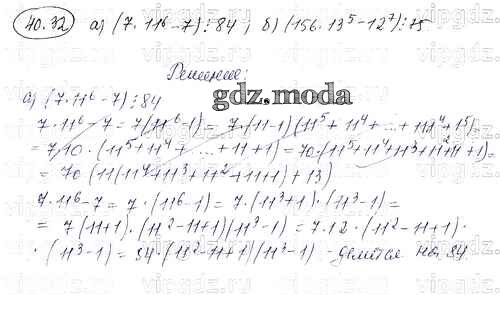 40.32 а) (7·11⁶-7)⋮84; б) (156·13⁵-12⁷)⋮75
Решение:
gdz.moda
а) (7·11⁶-7)⋮84
7·11⁶-7=7(11⁶-1)=7·(11-1)(11⁵+11⁴+...+11·1⁴+1⁵)
=7·10·(11⁵+11⁴+...+11+1)=70·(11⁵+11⁴+11³+11²+11+1)=
=70(11(11⁴+11³+11²+11+1)+13)
7·11⁶-7=7·(11⁶-1)=7·(11³+1)·(11³-1)=
=7(11+1)·(11²-11+1)(11³-1)=7·12·(11²-11+1)·
·(11³-1)=84·(11²-11+1)(11³-1) - делится на 84